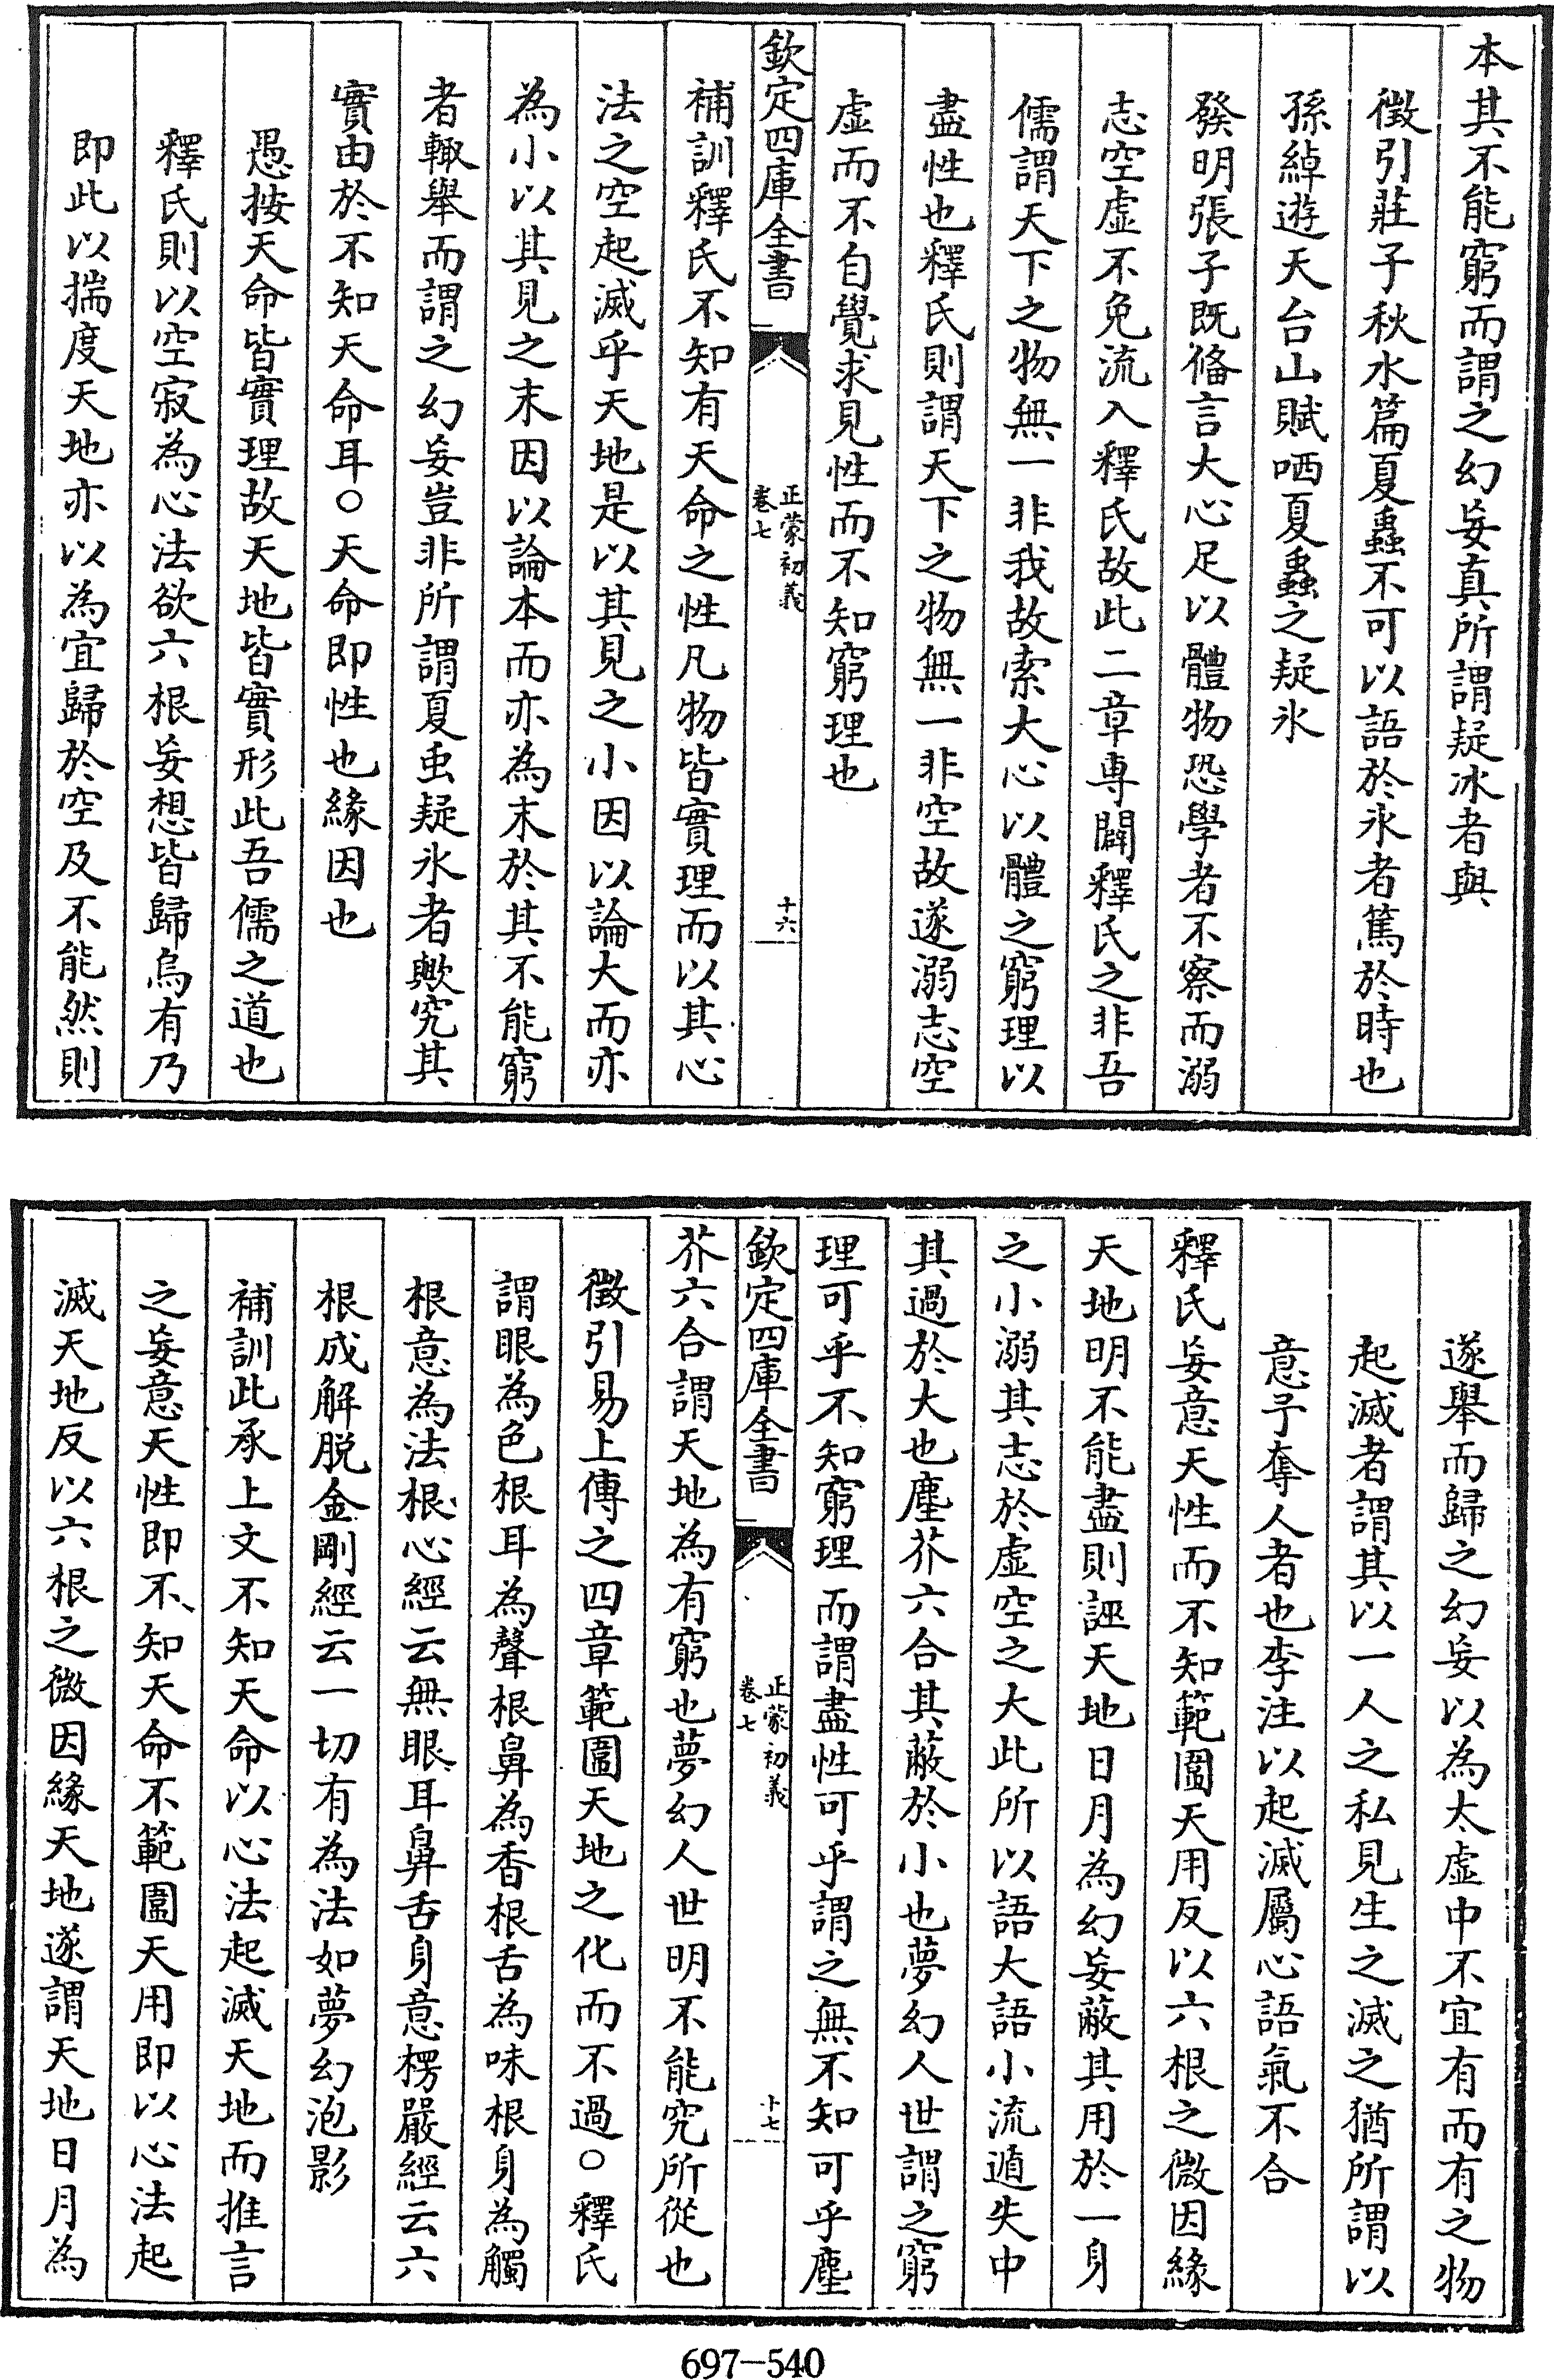 本其不能窮而謂之幻妄真所謂疑冰者與
徵引莊子秋水篇夏蟲不可以語於氷者篤於時也
孫綽遊天台山賦哂夏蟲之疑氷
發明張子既偹言大心足以體物恐學者不察而溺
志空虛不免流入釋氏故此二章専闢釋氏之非吾
儒謂天下之物無一非我故索大心以體之窮理以
盡性也釋氏則謂天下之物無一非空故遂溺志空
虛而不自覺求見性而不知窮理也
欽定四庫全書
正蒙初義
卷七
十六
補訓釋氏不知有天命之性凡物皆實理而以其心
法之空起滅乎天地是以其見之小因以論大而亦
為小以其見之末因以論本而亦為末於其不能窮
者輙舉而謂之幻妄豈非所謂夏虫疑氷者歟究其
實由於不知天命耳○天命即性也緣因也
愚按天命皆實理故天地皆實形此吾儒之道也
釋氏則以空寂為心法欲六根妄想皆歸烏有乃
即此以揣度天地亦以為宜歸於空及不能然則
遂舉而歸之幻妄以為太虛中不宜有而有之物
起滅者謂其以一人之私見生之滅之猶所謂以
意予奪人者也李注以起滅屬心語氣不合
釋氏妄意天性而不知範圍天用反以六根之微因緣
天地明不能盡則誣天地日月為幻妄蔽其用於一身
之小溺其志於虛空之大此所以語大語小流遁失中
其過於大也塵芥六合其蔽於小也夢幻人世謂之窮
理可乎不知窮理而謂盡性可乎謂之無不知可乎塵
欽定四庫全書
正蒙初義
卷七
十七
芥六合謂天地為有窮也夢幻人世明不能究所從也
徵引易上傳之四章範圍天地之化而不過○釋氏
謂眼為色根耳為聲根鼻為香根舌為味根身為觸
根意為法根心經云無眼耳鼻舌身意楞嚴經云六
根成解脱金剛經云一切有為法如夢幻泡影
補訓此承上文不知天命以心法起滅天地而推言
之妄意天性即不知天命不範圍天用即以心法起
滅天地反以六根之微因緣天地遂謂天地日月為
697-540